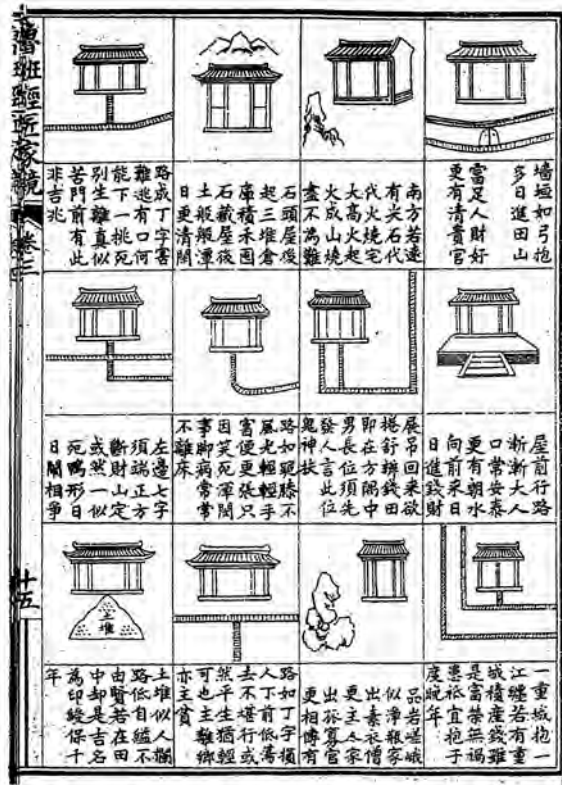 墻垣如弓抱
多日進田山
富足人財好
更有清貴官
南方若遠
有尖石代
代火燒宅
大高火起
火成山燒
盡不為難
石頭屋後
起三堆倉
庫積禾囤
石藏屋後
土般般潭
日更清閒
路成丁字害
難逃有口何
能下一挑死
別生離真似
苦門前有此
非吉兆
屋前行路
漸漸大人
口常安泰
更有朝水
向前來日
日進錢財
展吊回來欲
捲舒辨錢田
即在方隅中
男長位須先
發人言此位
鬼神扶
路如跪膝不
風光輕輕手
富便更張只
因笑死渾閒
事脚病常常
不離床
左邊七字
須端正方
斷財山定
或然一似
死鴨形日
日鬧相爭
一重城抱一
江纏若有重
城積產錢雖
是富榮無禍
患祗宜抱子
度晚年
品岩嵯峨
似淨瓶家
出素衣僧
更主人家
出孤寡官
更相傳有
路如丁字損
人丁前低蕩
去不堪行或
然平生猶輕
可也主離鄉
亦主貧
土堆
土堆似人攔
路低自縊不
由賢若在田
中却是吉名
為印綬保千
年
魯班經匠家鏡
卷三
十五